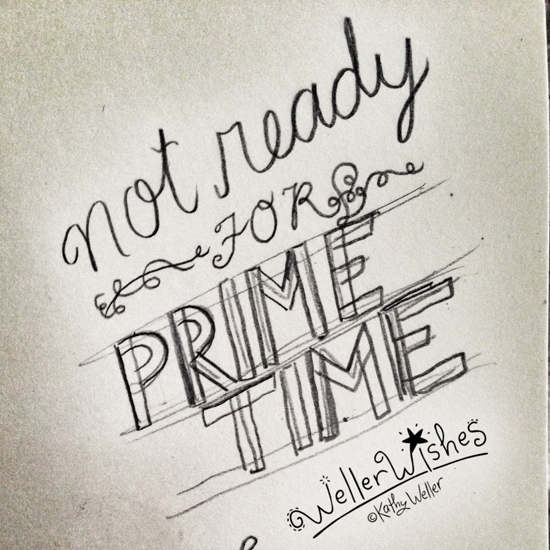 not ready
FOR
PRIME
TIME
WellerWishes
©Kathy Weller